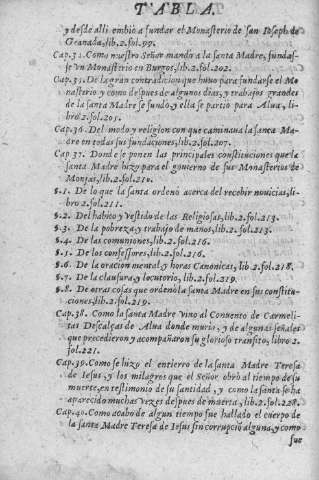 TABLA.
y desde alli embio a fundar el Monasterio de san Ioseph de
Granada, lib. 2. fol. 99.
Cap. 34. Como nuestro Señor mando a la santa Madre, fundas-
se vn Monasterio en Burgos, lib. 2. fol. 202.
Cap. 35. De la gran contradicion que huuo para fundarse el Mo
nasterio y como despues de algunos dias, y trabajos grandes
de la santa Madre se fundò, y ella se partio para Alua, li-
bro 2. fol. 205.
Cap. 36. Del modo y religion con que caminaua la santa Ma
dre en todas sus fundaciones, lib. 2. fol. 207.
Cap. 37. Donde se ponen las principales constituciones que la
santa Madre hizo para el gouierno de sus Monasterios de
Monjas, lib. 2. fol. 210.
§. 1. De lo que la santa ordenò acerca del recebir nouicias, li-
bro 2. fol. 211.
§. 2. Del habito y vestido de las Religiosas, lib. 2. fol. 213.
§. 3. De la pobreza, y trabajo de manos, lib. 2. fol. 213.
§. 4. De las comuniones, lib. 2. fol. 216.
§. 5. De los confessores, lib. 2. fol. 216.
§. 6. De la oracion mental, y horas Canonicas, lib. 2. fol. 218.
§. 7. De la clausura, y locutorio, lib. 2. fol. 219.
§. 8. De otras cosas que ordenò la santa Madre en sus constitu-
ciones, lib. 2. fol. 219.
Cap. 38. Como la santa Madre vino al Conuento de Carmeli-
tas Descalças de Alua donde murio, y de algunas señales
que precedieron y acompañaron su glorioso transito, libro 2.
fol. 221.
Cap. 39. Como se hizo el entierro de la santa Madre Teresa
de Iesus, y los milagros que el Señor obrò al tiempo de su
muerte, en testimonio de su santidad, y como la santa se ha
aparecido muchas vezes despues de muerta, lib. 2. fol. 228.
Cap. 40. Como acabo de algun tiempo fue hallado el cuerpo de
la santa Madre Teresa de Iesus sin corrupciõ alguna, y como
fue